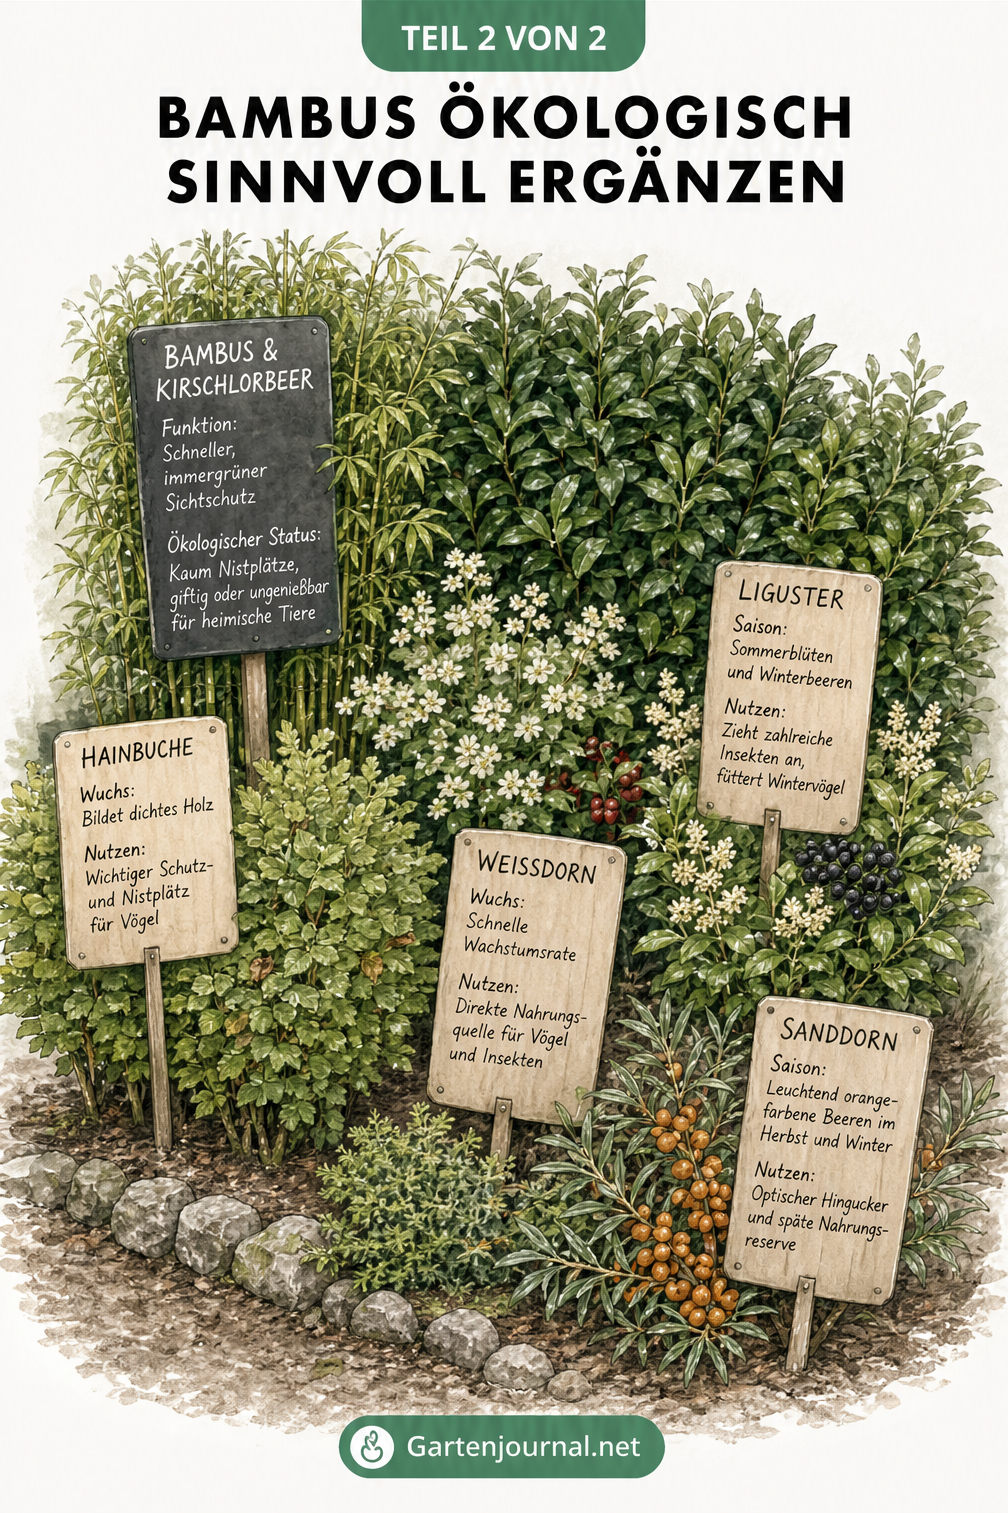 TEIL 2 VON 2
BAMBUS ÖKOLOGISCH
SINNVOLL ERGÄNZEN
BAMBUS &
KIRSCHLORBEER
Funktion:
Schneller,
immergrüner
Sichtschutz
Ökologischer Status:
Kaum Nistplätze,
giftig oder ungenießbar
für heimische Tiere
LIGUSTER
Saison:
Sommerblüten
und Winterbeeren
Nutzen:
Zieht zahlreiche
Insekten an,
füttert Wintervögel
HAINBUCHE
Wuchs:
Bildet dichtes Holz
Nutzen:
Wichtiger Schutz-
und Nistplätz
für Vögel
WEISSDORN
Wuchs:
Schnelle
Wachstumsrate
Nutzen:
Direkte Nahrungs-
quelle für Vögel
und Insekten
SANDDORN
Saison:
Leuchtend orange-
farbene Beeren im
Herbst und Winter
Nutzen:
Optischer Hingucker
und späte Nahrungs-
reserve
Gartenjournal.net